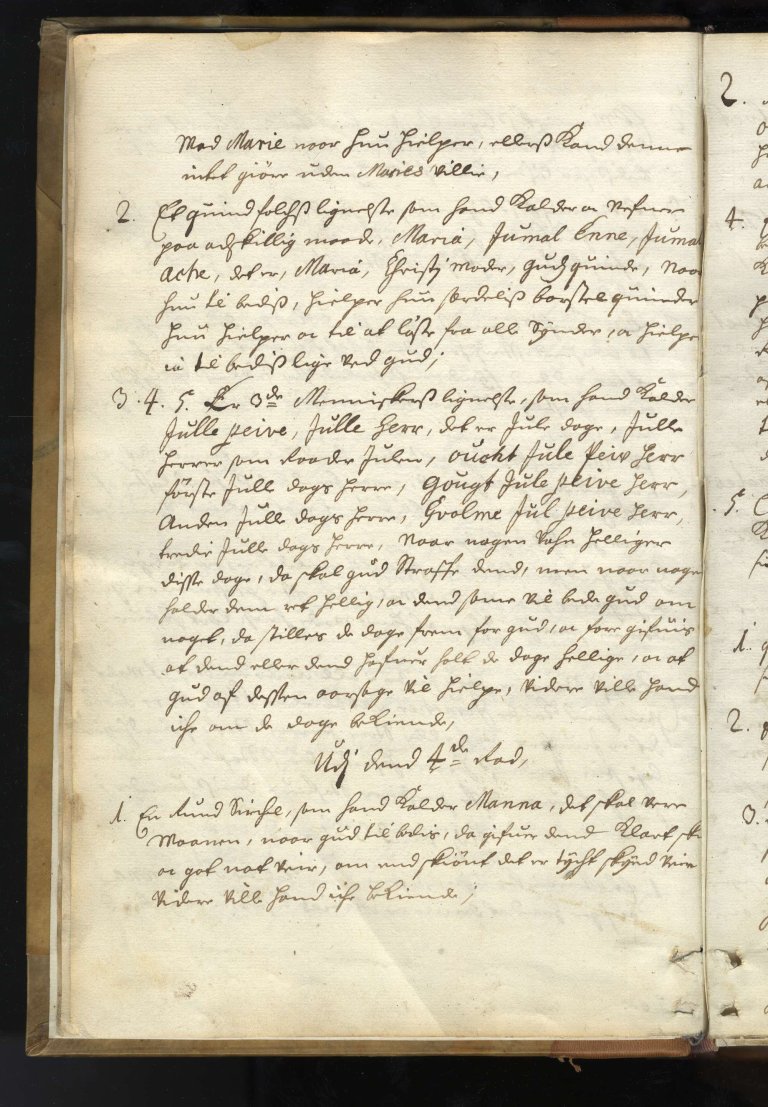 Med Marie noor hun hielper, ellerß Kand denne
intet giöre uden Maries villie,
2. Et quindfolchß lignelste som hand Kalder oc Nefner
paa adskillig maade, Maria, Jumal Enne, Juma
Ache, det er, Maria, Christj moder, gudz quinde, Noor
hun til bediß, hielper hun særdeliß barsselquinder
hun hielper oc til at löste fra alle Synder, oc hielpe
til bediß lige ved gud;
3. 4. 5. Er 3de Menniskerß lignelste, som hand Kalder
Julle peive, Julle Herr, det er Jule dage, Julle
herrer som Raader Julen, oucht Jule Peiv Herr
förste Julle dags herre, Gougt Jule peive Herr,
Anden Julle dags herre, Gvolme Jul peive Herr,
tredie Julle dags herre, Naar nogen van helliger
disse dage, da skal gud Straffe dend, men naar noge
holder dem ret hellig, oc dend samme vil bede gud om
noget, da stilles de dage frem for gud, oc fore gifuis
at dend eller dend hafuer holt de dage hellige, oc at
gud af dessen aarsage vil hielpe, videre ville hand
iche om de dage bekiende,
Udj dend 4de Rad,
1. En Rund Circhel, som hand Kalder Manna, det skal vere
Maanen, naar gud til bedis, da gifuer dend Klart
oc got nat veir, om end skiönt det er tycht skyed veir
videre ville hand iche bekiende;
2.
4.
5.
1.
2.
3.